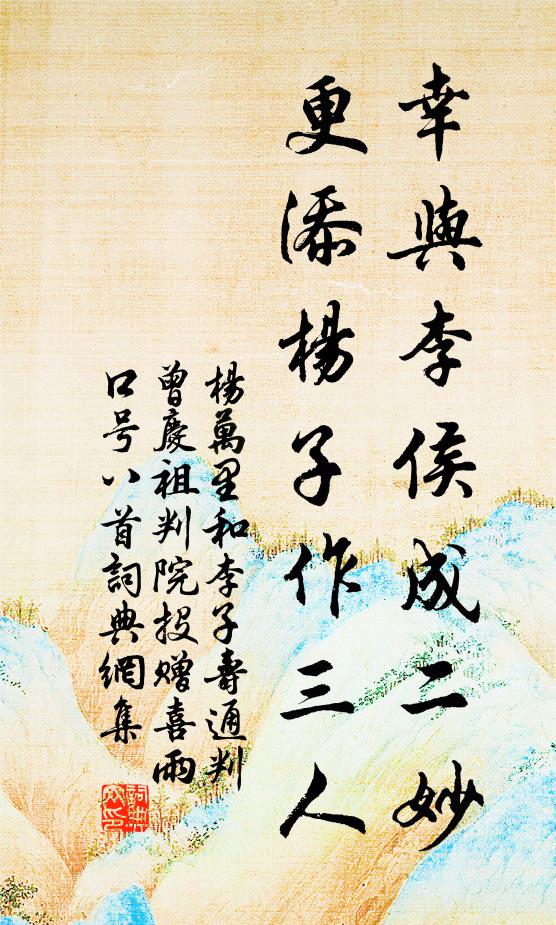 幸與李侯成二妙
更添楊子作三人
楊萬里和李子壽通判
曾慶祖判院投贈喜雨
口号八首詞典網集